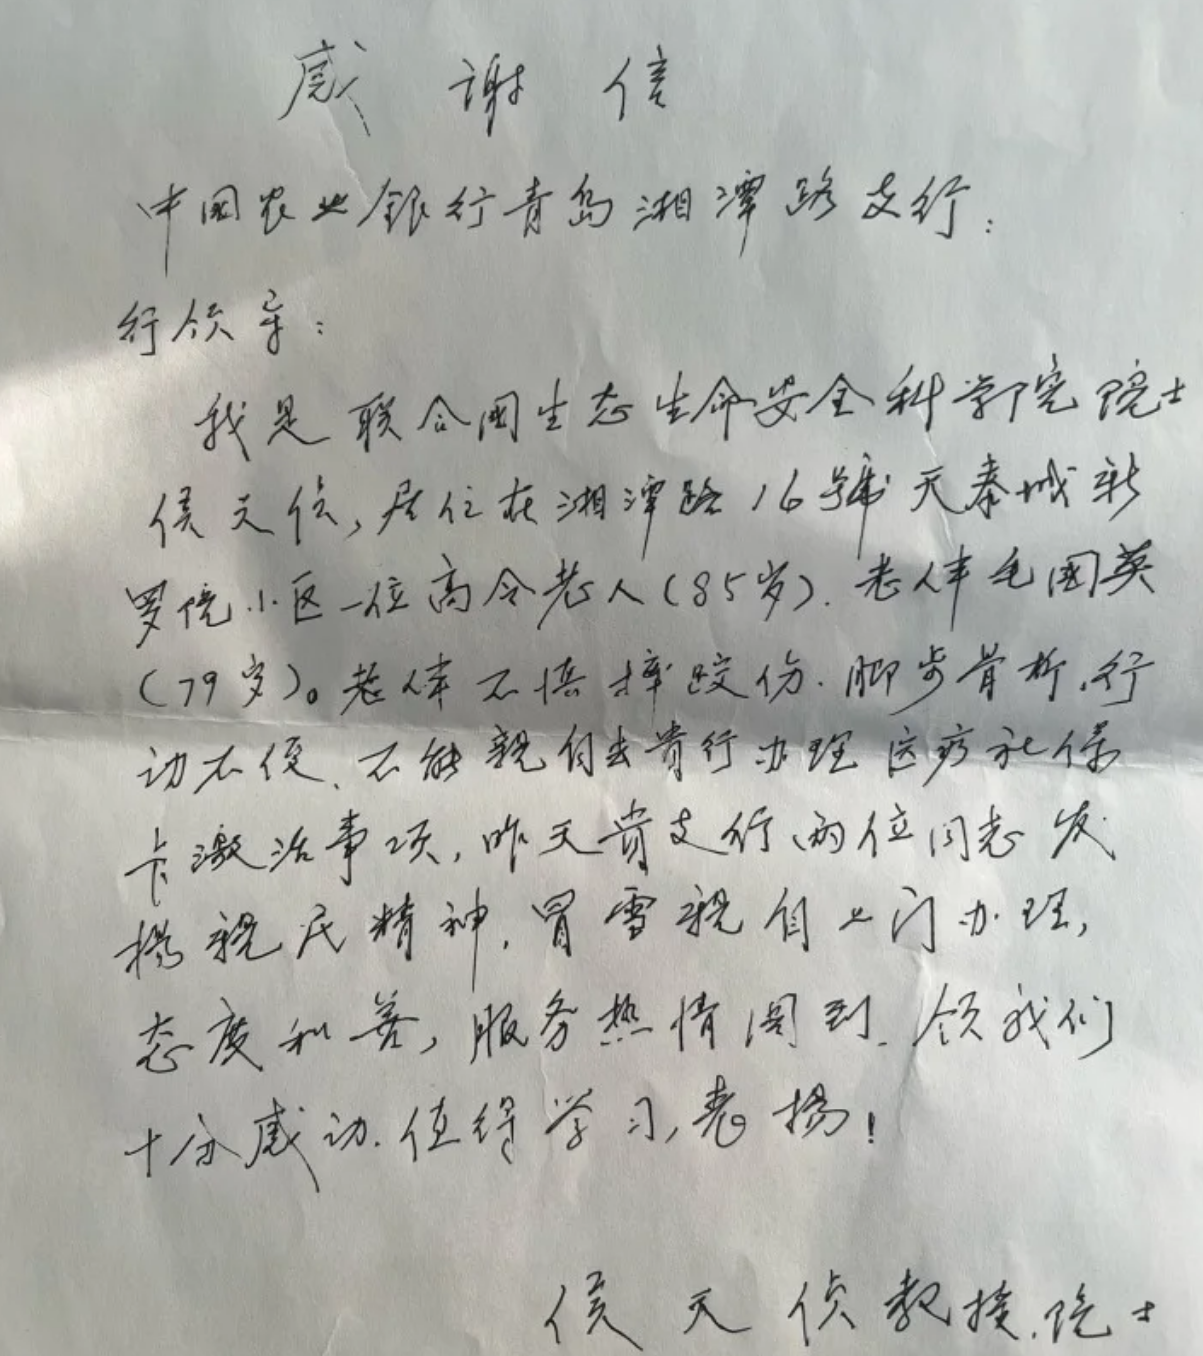 感谢信
中国农业銀行青岛湘潭路支行：
行领导：
我是联合国生态生命安全科学院院士
侯天侦，居住在湘潭路16號天泰城新
罗院小区一位高令老人(85岁)．老伴毛国英
(79岁)。老伴不慎摔跤伤．脚步骨折，行
动不便、不能親自去贵行办理医疗社保
卡激活事项，昨天贵支行两位同志发
揚親民精神，冒雪親自上门办理，
态度和善，服务热情周到．领我们
十分感动．值得学习，表揚！
侯天侦教授．院士